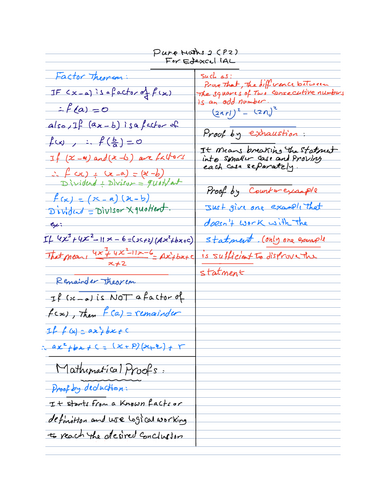 Pure Maths 2 (P2)
For Edexcel IAL
Factor Theorem:
IF (x-a) is a factor of f(x)
∴ f(a) = 0
also, If (ax-b) is a factor of
f(x), ∴ f(b/a) = 0
If (x-a) and (x-b) are factors
∴ f(x) ÷ (x-a) = (x-b)
Dividend ÷ Divisor = quotient
f(x) = (x-a)(x-b)
Dividend = Divisor × quotient.
ex:
If 4x³+4x²-11x-6=(x+2)(Ax²+bx+c)
That means 4x³+4x²-11x-6/x+2 = Ax²+bx+c
Remainder Theorem
If (x-a) is NOT a factor of
f(x), Then f(a) = remainder
If f(a) = ax²+bx+c
∴ ax²+bx+c = (x+p)(x+q)+r
Mathematical Proofs:
Proof by deduction:
It starts from a known facts or
definition and use logical working
to reach the desired conclusion
such as:
Prove that, the difference between
the squares of two consecutive numbers
is an odd number.
(2n+1)² - (2n)²
Proof by exhaustion:
It means breaking the statment
into smaller case and proving
each case separately.
Proof by Counter example
Just give one example that
doesn't work with the
statment. (only one example
is sufficient to disprove the
statment